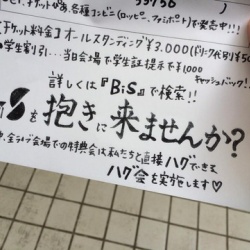 チケットぴあ、各種コンビニ(ロッピー、ファミポート)で発売中!!!
【チケット料金】オールスタンディング¥3.000(ドリンク代別¥50
学生割引...当日会場で学生証提示で¥1000
キャッシュバック!!
詳しくは『BiS』で検索!!
Sを抱きに来ませんか?
全ライブ会場での特典会は私たちと直接ハグできる
ハグ会を実施します♡